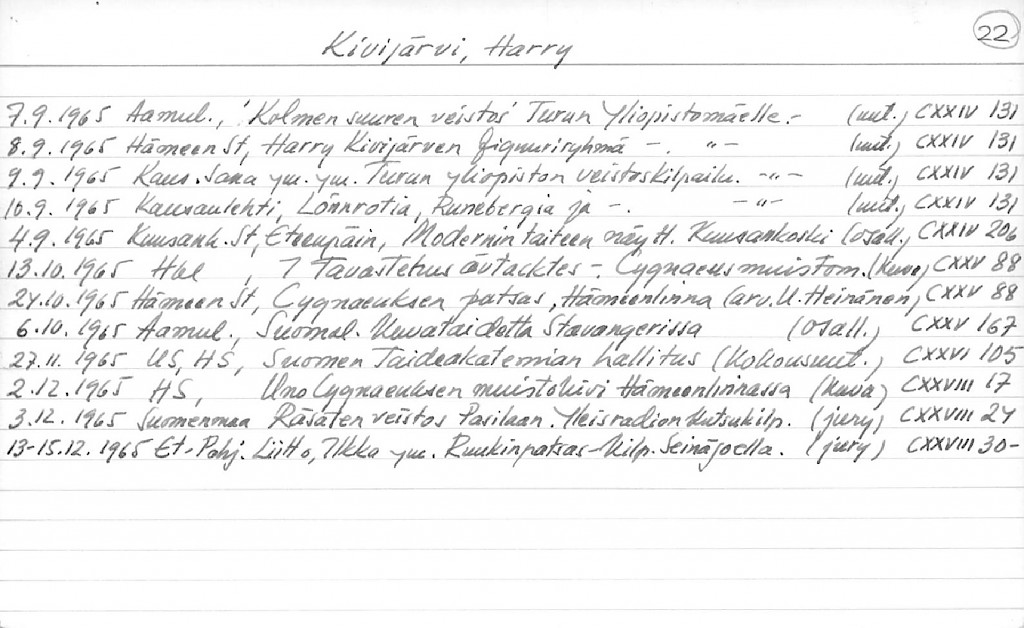 22
Kivijärvi, Harry
7.9.1965 Aamul., 'Kolmen suuren veistos' Turun Yliopistomäelle.- (uut.) CXXIV 131
8.9.1965 Hämeen St, Harry Kivijärven figuuriryhmä -. -"- (uut.) CXXIV 131
9.9.1965 Kans. Sana ym. ym. Turun yliopiston veistoskilpailu. -"- (uut.) CXXIV 131
10.9.1965 Kansanlehti, Lönnrotia, Runebergia ja -. -"- (uut.) CXXIV 131
4.9.1965 Kuusank. St, Eteenpäin, Modernin taiteen näytt. Kuusankoski (osall.) CXXIV 206
13.10.1965 Hbl , I Tavastehus avtäcktes -. Cygnaeusmuistom. (Kuva) CXXV 88
24.10.1965 Hämeen St, Cygnaeuksen patsas, Hämeenlinna (arv. U. Heinänen) CXXV 88
6.10.1965 Aamul., Suomal. Kuvataidetta Stavangerissa (osall.) CXXV 167
27.11.1965 US, HS, Suomen Taideakatemian hallitus (Kokousuut.) CXXVI 105
2.12.1965 HS, Uno Cygnaeuksen muistokivi Hämeenlinnassa (Kuva) CXXVIII 17
3.12.1965 Suomenmaa Räsäten veistos Pasilaan. Yleisradion Kutsukilp. (jury) CXXVIII 24
13-15.12.1965 Et-Pohj. Liitto, Ilkka ym. Ruukinpatsas-Kilp. Seinäjoella. (jury) CXXVIII 30-